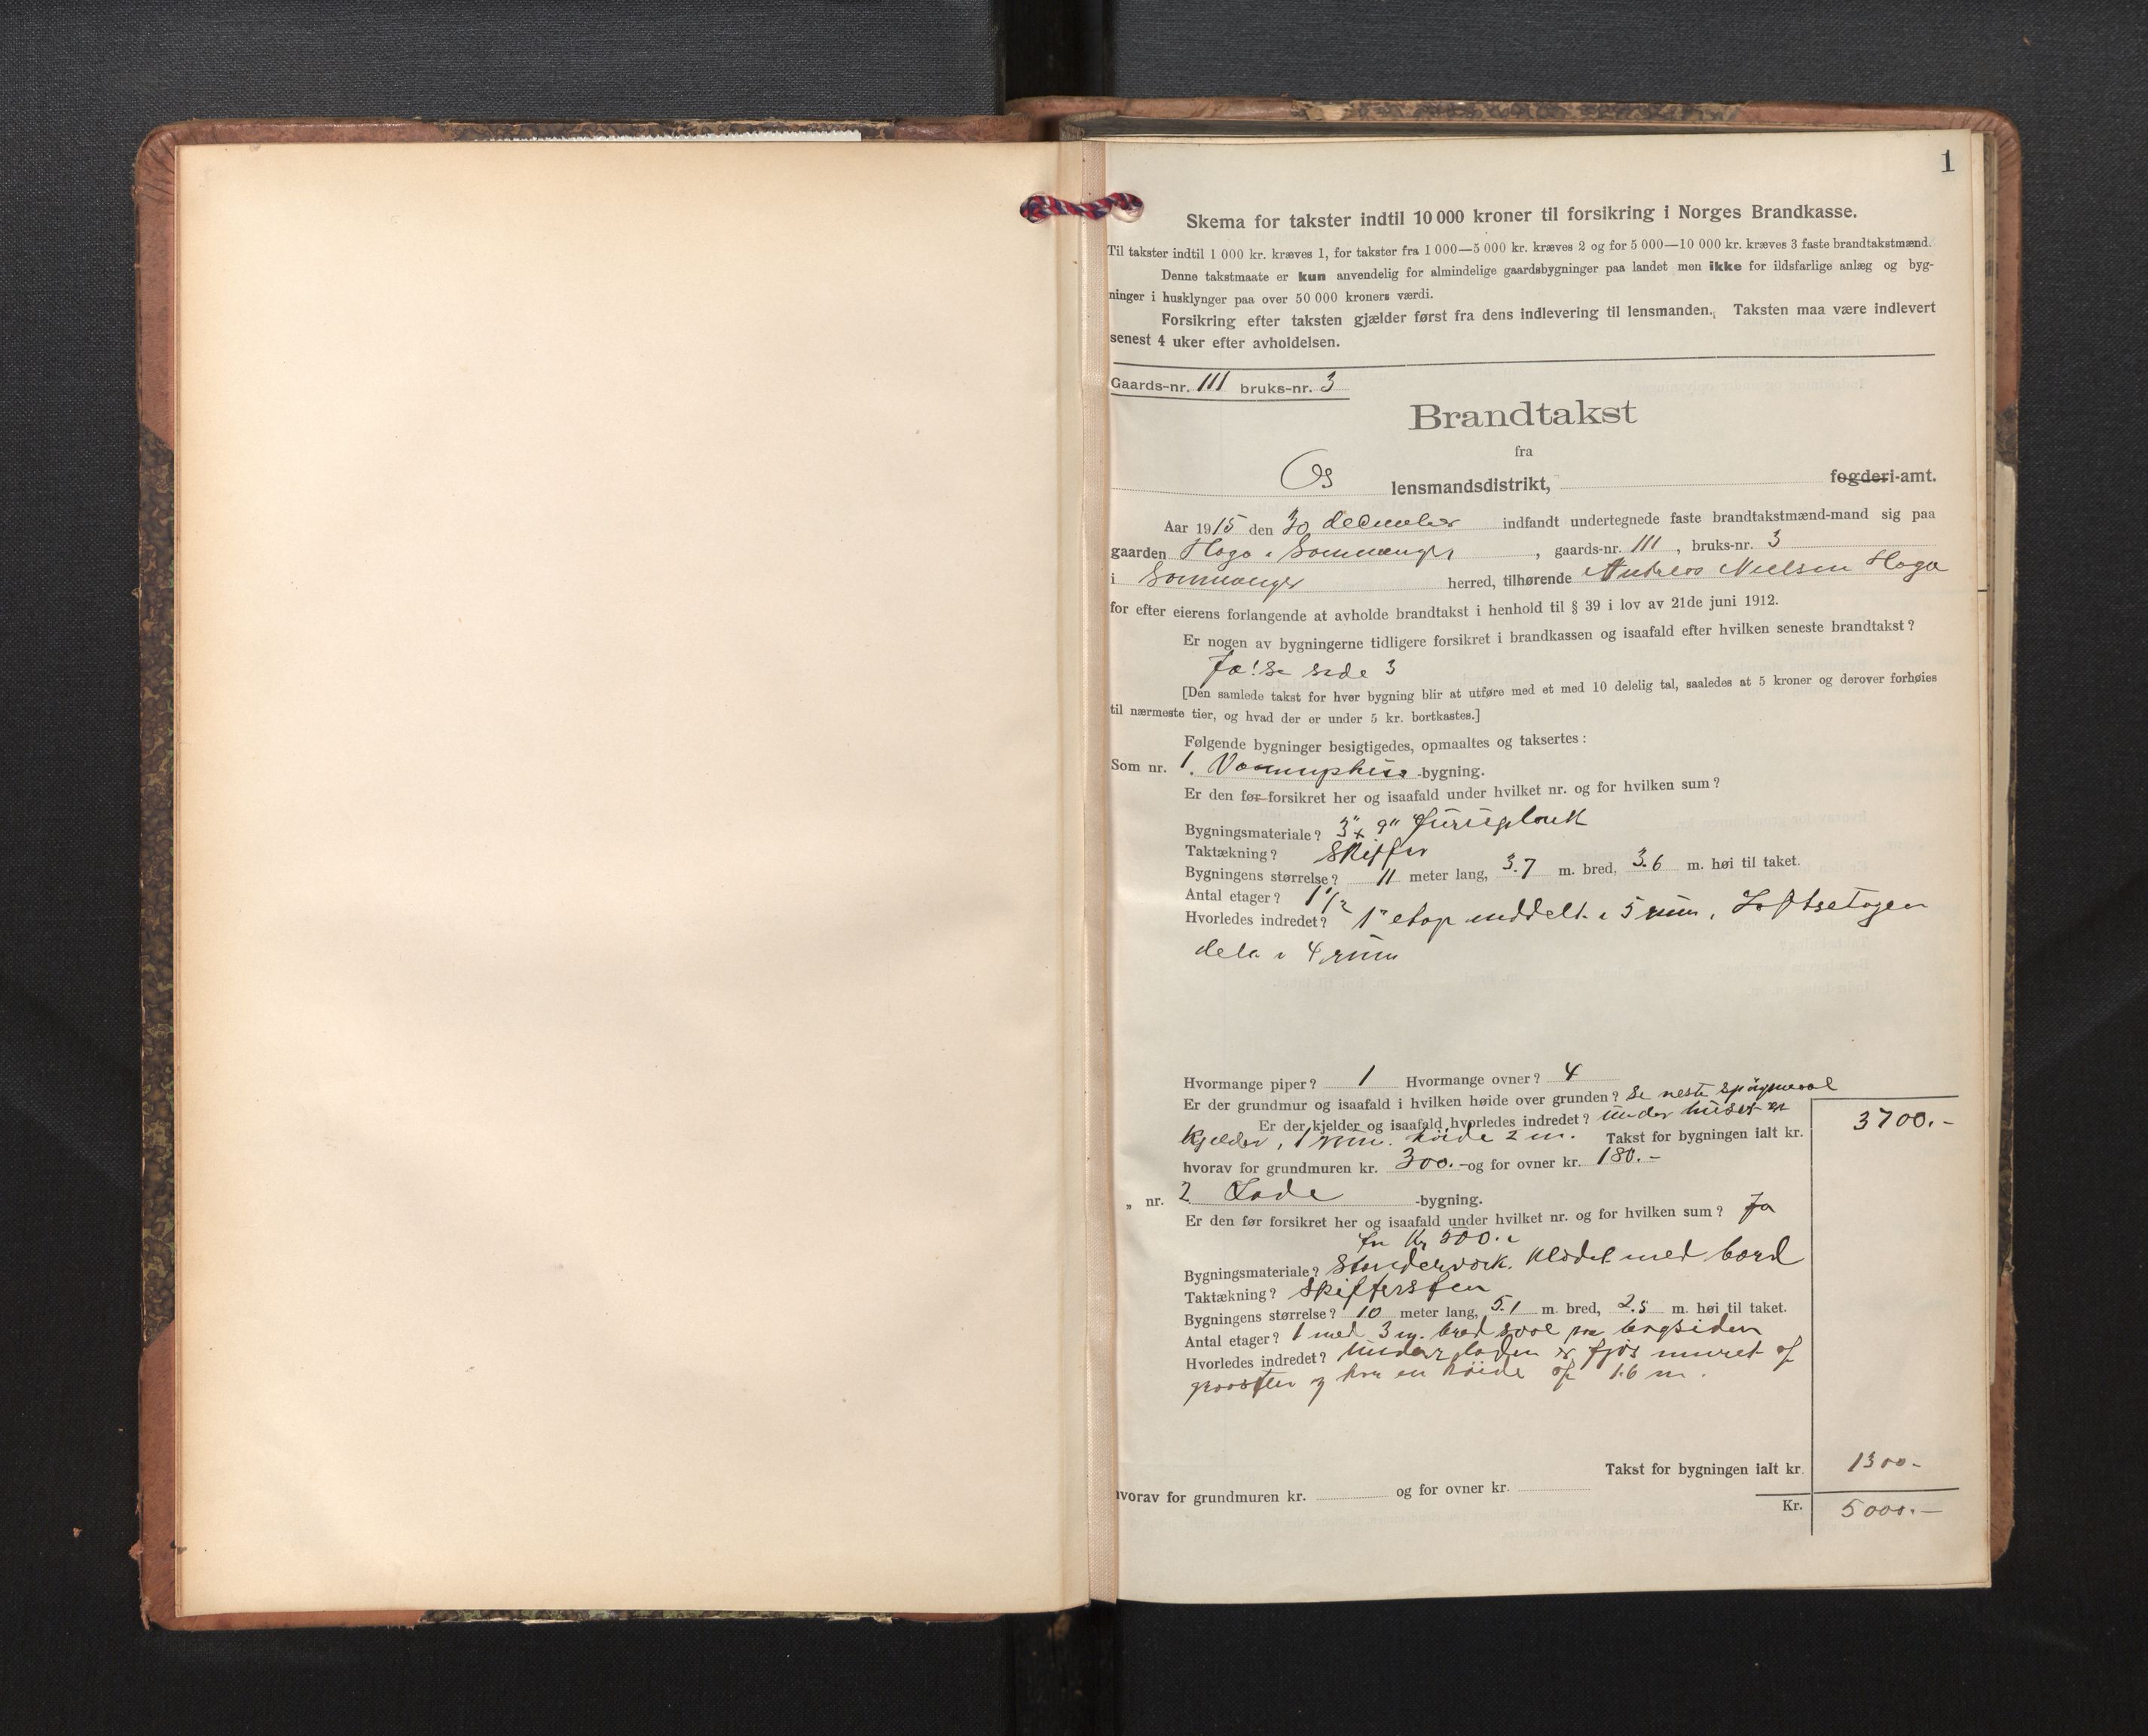 1
Skema for takster indtil 10 000 kroner til forsikring i Norges Brandkasse.
Til takster indtil 1 000 kr. kræves 1, for takster fra 1 000—5 000 kr. kræves 2 og for 5 000—10 000 kr. kræves 3 faste brandtakstmænd.
Denne takstmaate er kun anvendelig for almindelige gaardsbygninger paa landet men ikke for ildsfarlige anlæg og byg-
ninger i husklynger paa over 50 000 kroners værdi.
Forsikring efter taksten gjælder først fra dens indlevering til lensmanden. Taksten maa være indlevert
senest 4 uker efter avholdelsen.
Gaards-nr. 111 bruks-nr. 3
Brandtakst
fra
Os lensmandsdistrikt, fogderi-amt.
Aar 1915 den 30 december indfandt undertegnede faste brandtakstmænd-mand sig paa
gaarden Haga i Samnanger, gaards-nr. 111, bruks-nr. 3
i Samnanger herred, tilhørende Andreas Nielsen Haga
for efter eierens forlangende at avholde brandtakst i henhold til § 39 i lov av 21de juni 1912.
Er nogen av bygningerne tidligere forsikret i brandkassen og isaafald efter hvilken seneste brandtakst?
Ja! Se side 3
[Den samlede takst for hver bygning blir at utføre med et med 10 delelig tal, saaledes at 5 kroner og derover forhøies
til nærmeste tier, og hvad der er under 5 kr. bortkastes.]
Følgende bygninger besigtigedes, opmaaltes og taksertes:
Som nr. 1. Vaanings -bygning.
Er den før forsikret her og isaafald under hvilket nr. og for hvilken sum?
Bygningsmateriale? 3" x 9" furuplank
Taktækning? Skiffer
Bygningens størrelse? 11 meter lang, 3.7 m. bred, 3.6 m. høi til taket.
Antal etager? 1 1/2
Hvorledes indredet? 1ste etage inddelt i 5 rum, Loftsetagen
delt i 4 rum
Hvormange piper? 1 Hvormange ovner? 4
Er der grundmur og isaafald i hvilken høide over grunden? Se neste spørgsmaal
Er der kjelder og isaafald hvorledes indredet? Under huset er
kjelder, 1 rum. høide 2 m. Takst for bygningen ialt kr. 3700.-
hvorav for grundmuren kr. 300.- og for ovner kr. 180.-
„ nr. 2 Lade -bygning.
Er den før forsikret her og isaafald under hvilket nr. og for hvilken sum? Ja
for Kr 500.-
Bygningsmateriale? Standerverk. Klædt med bord
Taktækning? Skiffersten
Bygningens størrelse? 10 meter lang, 5.1 m. bred, 2.5 m. høi til taket.
Antal etager? 1 med 3 m. bred sval paa bagsiden
Hvorledes indredet? Under laden er fjøs muret af
graasten og har en høide af 1.6 m.
Takst for bygningen ialt kr. 1300-
hvorav for grundmuren kr. og for ovner kr.
Kr. 5000.-